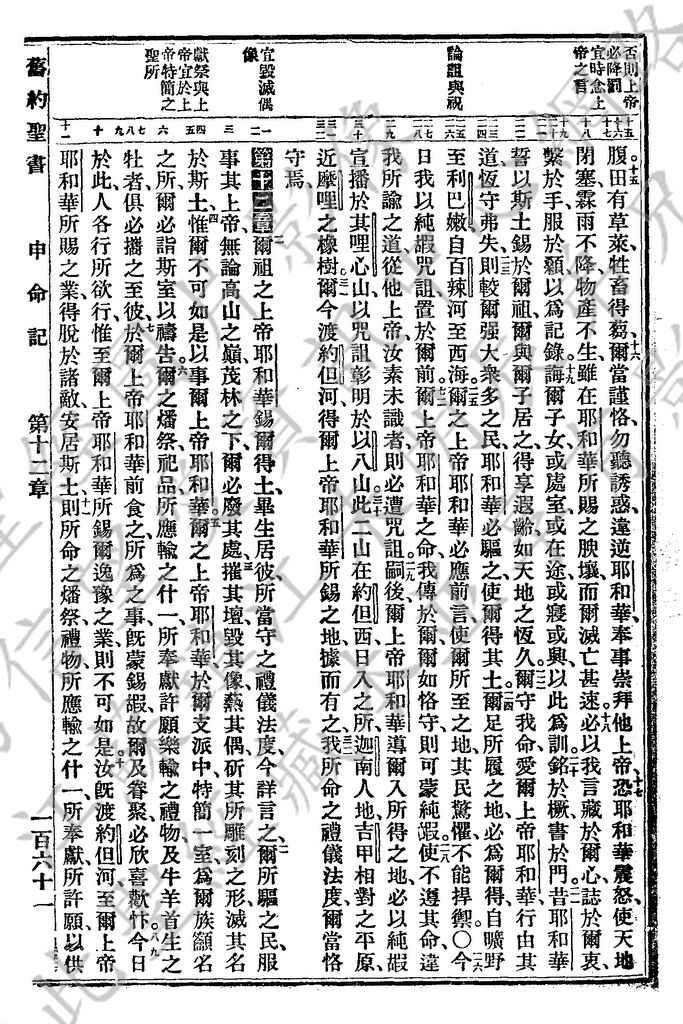 否則上帝
必降罰
宜時念上
帝之言
論詛與祝
宜毀滅偶
像
獻祭與上
帝宜於上
帝特簡之
聖所
腹田有草萊牲畜得芻爾當謹恪勿聽誘惑違逆耶和華奉事崇拜他上帝恐耶和華震怒使天地
閉塞霖雨不降物產不生雖在耶和華所賜之腴壤而爾滅亡甚速必以我言藏於爾心誌於爾衷
繫於手服於額以為記錄誨爾子女或處室或在途或寢或興以此為訓銘於橛書於門昔耶和華
誓以斯土錫於爾祖爾與爾子居之得享遐齡如天地之恆久爾守我命愛爾上帝耶和華行由其
道恆守弗失則較爾强大衆多之民耶和華必驅之使爾得其土爾足所履之地必爾得自曠野
至利巴嫩自百辣河至西海爾之上帝耶和華必應前言使爾所至之地其民驚懼不能捍禦○今
日我以純嘏咒詛置於爾前爾上帝耶和華之命我傳於爾爾如恪守則可蒙純嘏使不遵其命違
我所諭之道從他上帝汝素未識者則必遭咒詛嗣後爾上帝耶和華導爾入所得之地必以純嘏
宣播於其哩心山以咒詛彰明於以八山此二山在約但西日入之所迦南人地吉甲相對之平原
近摩哩之橡樹爾今渡約但河得爾上帝耶和華所錫之地據而有之我所命之禮儀法度爾當恪
守焉
第十二章爾祖之上帝耶和華錫爾得土畢生居彼所當守之禮儀法度今詳言之爾所驅之民服
事其上帝無論高山之巔茂林之下爾必廢其處摧其壇毀其像爇其偶斫其所雕刻之形滅其名
於斯土惟爾不可如是以事爾上帝耶和華爾之上帝耶和華於爾支派中特簡一室為爾族籲名
之所爾必詣斯室以禱告爾之燔祭祀品所應輸之什一所奉獻許願樂輸之禮物及牛羊首生之
牡者俱必攜之至彼於爾上帝耶和華前食之所為之事既蒙錫嘏故爾及眷聚必欣喜歡忭今日
於此人各行所欲行惟至爾上帝耶和華所錫爾逸豫之業則不可如是汝既渡約但河至爾上帝
耶和華所賜之業得脫於諸敵安居斯土則所命之燔祭禮物所應輸之什一所奉獻所許願以供
舊約聖書 申命記 第十二章 一百六十一